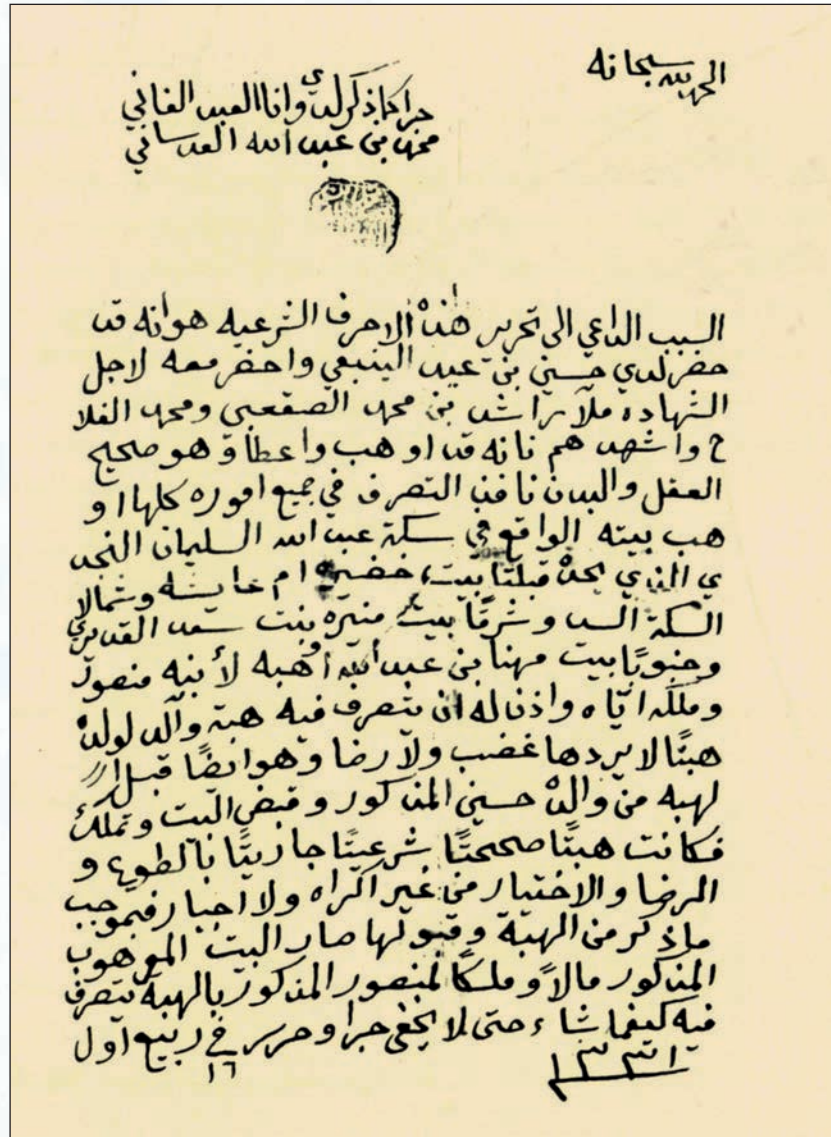 الحمد لله سبحانه
جرا كما ذكر لدي وانا العبد الفاني
محمد بن عبد الله العدساني
السبب الداعي الى تحرير هذه الاحرف الشرعيه هو أنه قد
حضر لدي حسين بن عيد الينبعي واحضر معه لاجل
الشهاده ملا راشد بن محمد الصقعبي ومحمد الفلا
ح واشهد هم نانه قد اوهب واعطا وهو صحيح
العقل والبدن نافذ التصرف في جميع اموره كلها او
هب بيته الواقع في سكة عبد الله السليمان النجد
ي الذي يحده قبلتًا بيت خضيره ام عايشه وشمالا
السكة السد وشرقًا بيت منيره بنت سعد القديري
وجنوبًا بيت مهنا بن عبد الله أوهبه لأبنه منصور
وملكه اياه واذن له ان يتصرف فيه هبة والد لولده
هبتًا لا يردها غضب ولا رضا وهو ايضًا قبل ال
لهبه من والده حسين المذكور وقبض البيت وتملكه
فكانت هبتًا صحيحتًا شرعيتًا جازيتًا بالطوع و
الرضا والاختيار من غير اكراه ولا اجبار فبموجب
ما ذكر من الهبة وقبولها صار البيت الموهوب
المذكور مالاً وملكًا لمنصور المذكور بالهبة يتصرف
فيه كيفما شاء حتى لا يخفى جرا وحرر في ربيع اول
١٦ ١٣٣١